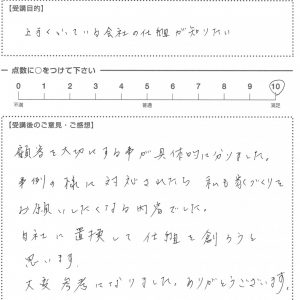 【受講目的】
上手くいっている会社の仕組が知りたい
点数に○をつけて下さい
0 1 2 3 4 5 6 7 8 9 10
不満 普通 満足
【受講後のご意見・ご感想】
顧客を大切にする事が具体的に分りました。
事例の様に対応されたら 私も家づくりを
お願いしたくなる内容でした。
自社に置換して仕組を創ろうと
思います。
大変参考になりました。ありがとうございます。